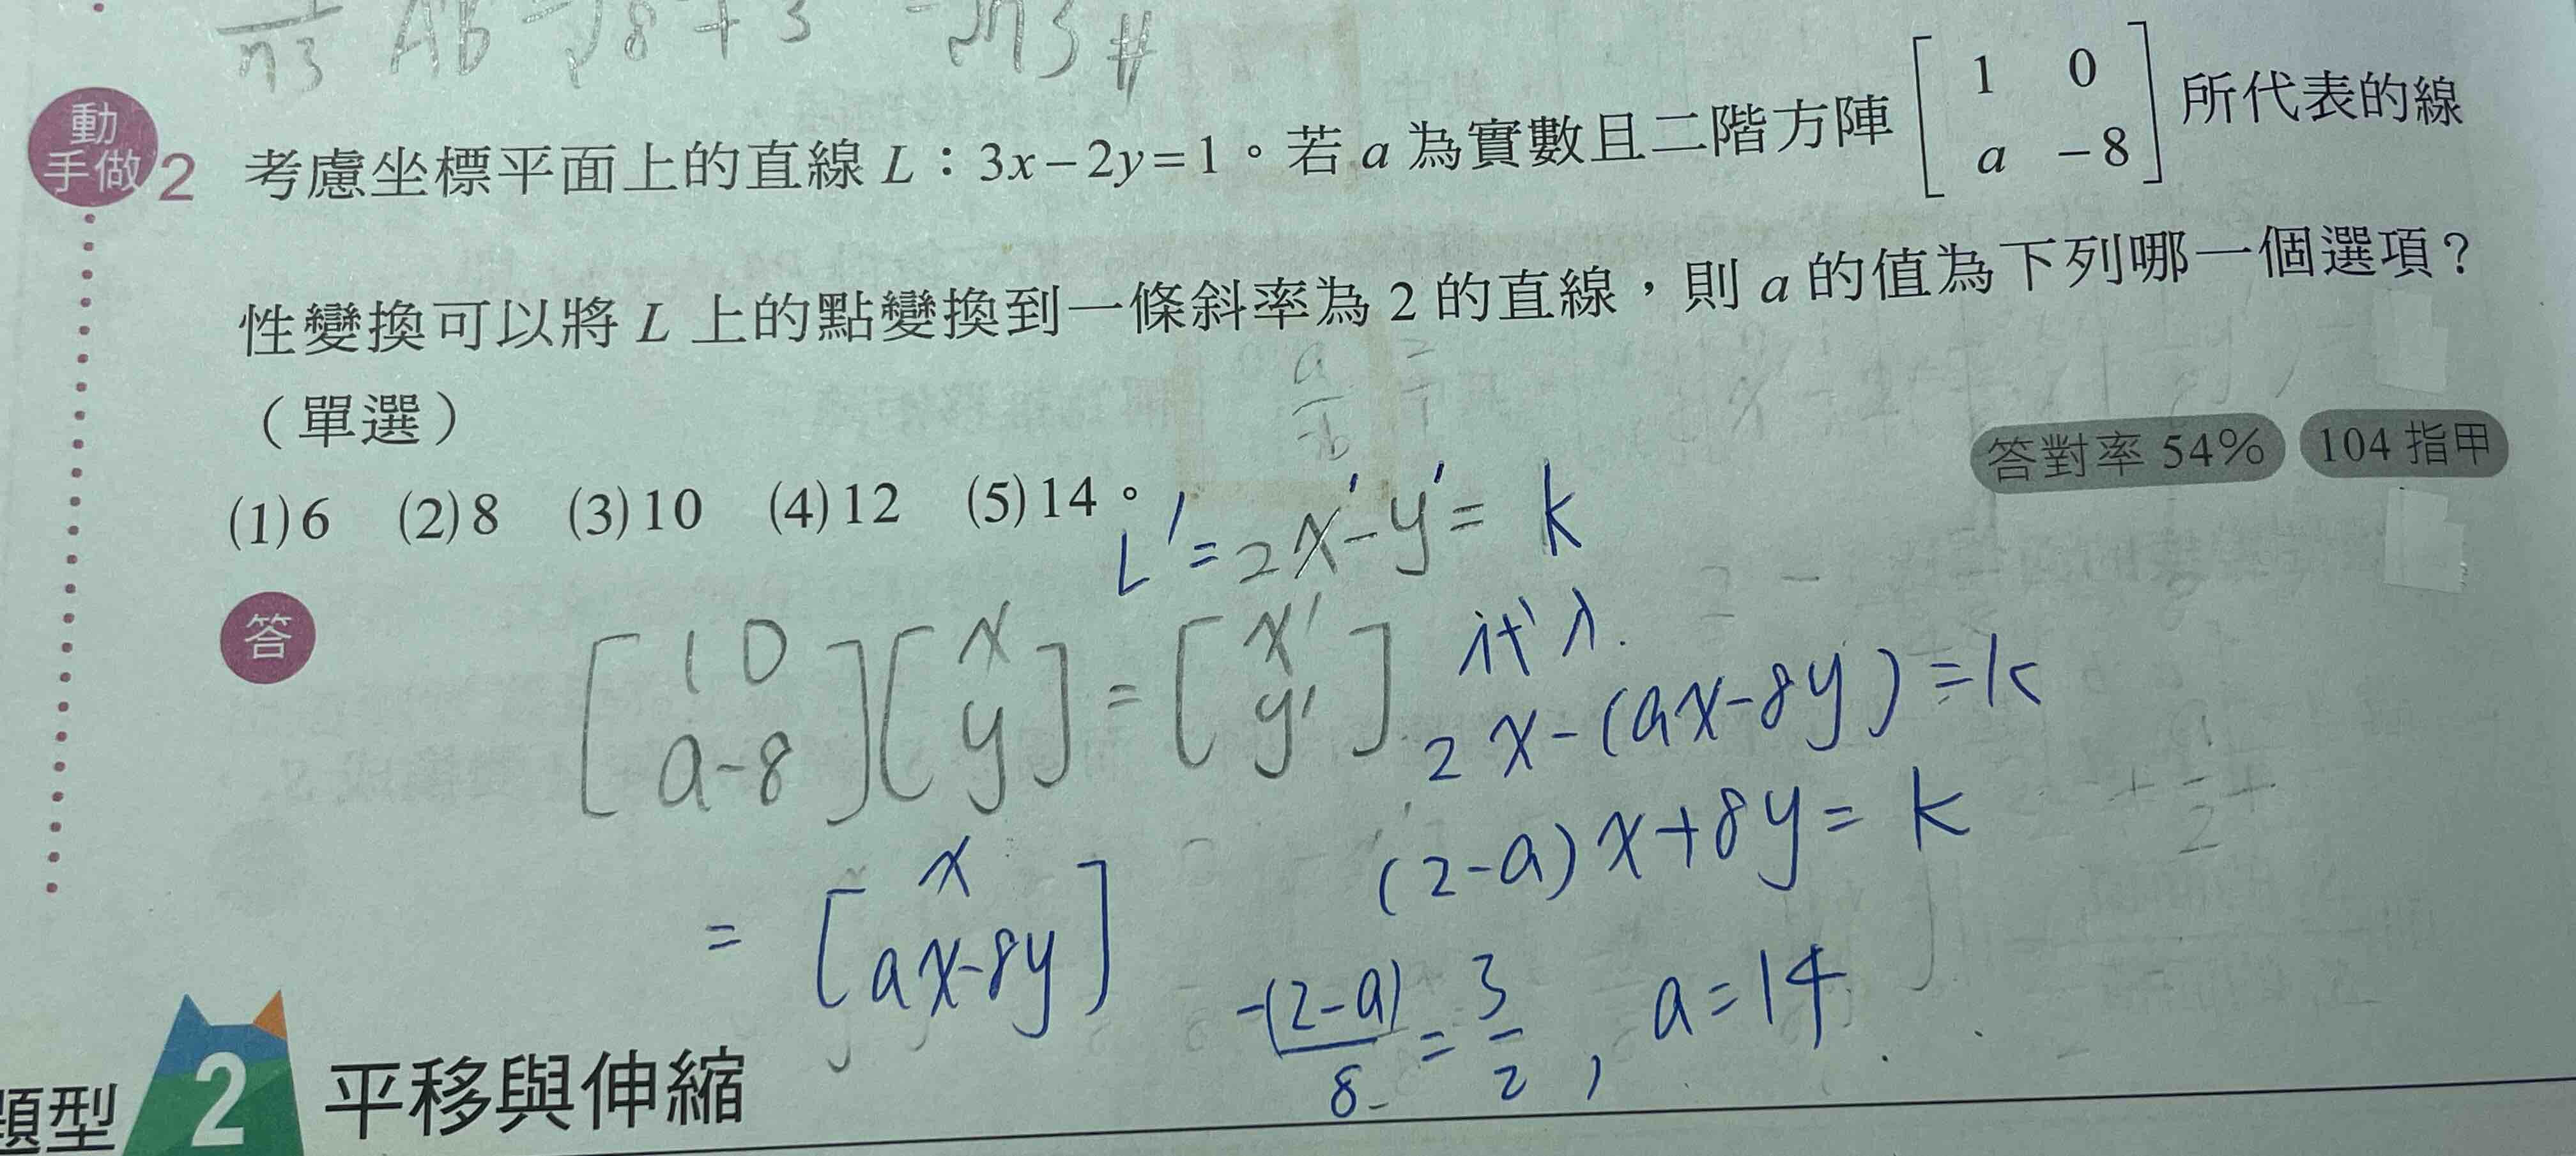 動手做 2 考慮坐標平面上的直線 L：3x－2y＝1。若 a 為實數且二階方陣 [1 0; a －8] 所代表的線
性變換可以將 L 上的點變換到一條斜率為 2 的直線，則 a 的值為下列哪一個選項？
（單選）
答對率 54% 104 指甲
(1) 6 (2) 8 (3) 10 (4) 12 (5) 14。
L'= 2x'-y'= k
答
[1 0; a -8][x; y] = [x'; y'] 代入.
2x-(ax-8y)=k
= [x; ax-8y]
(2-a)x+8y= k
-(2-a)/8 = 3/2, a=14
題型 2 平移與伸縮